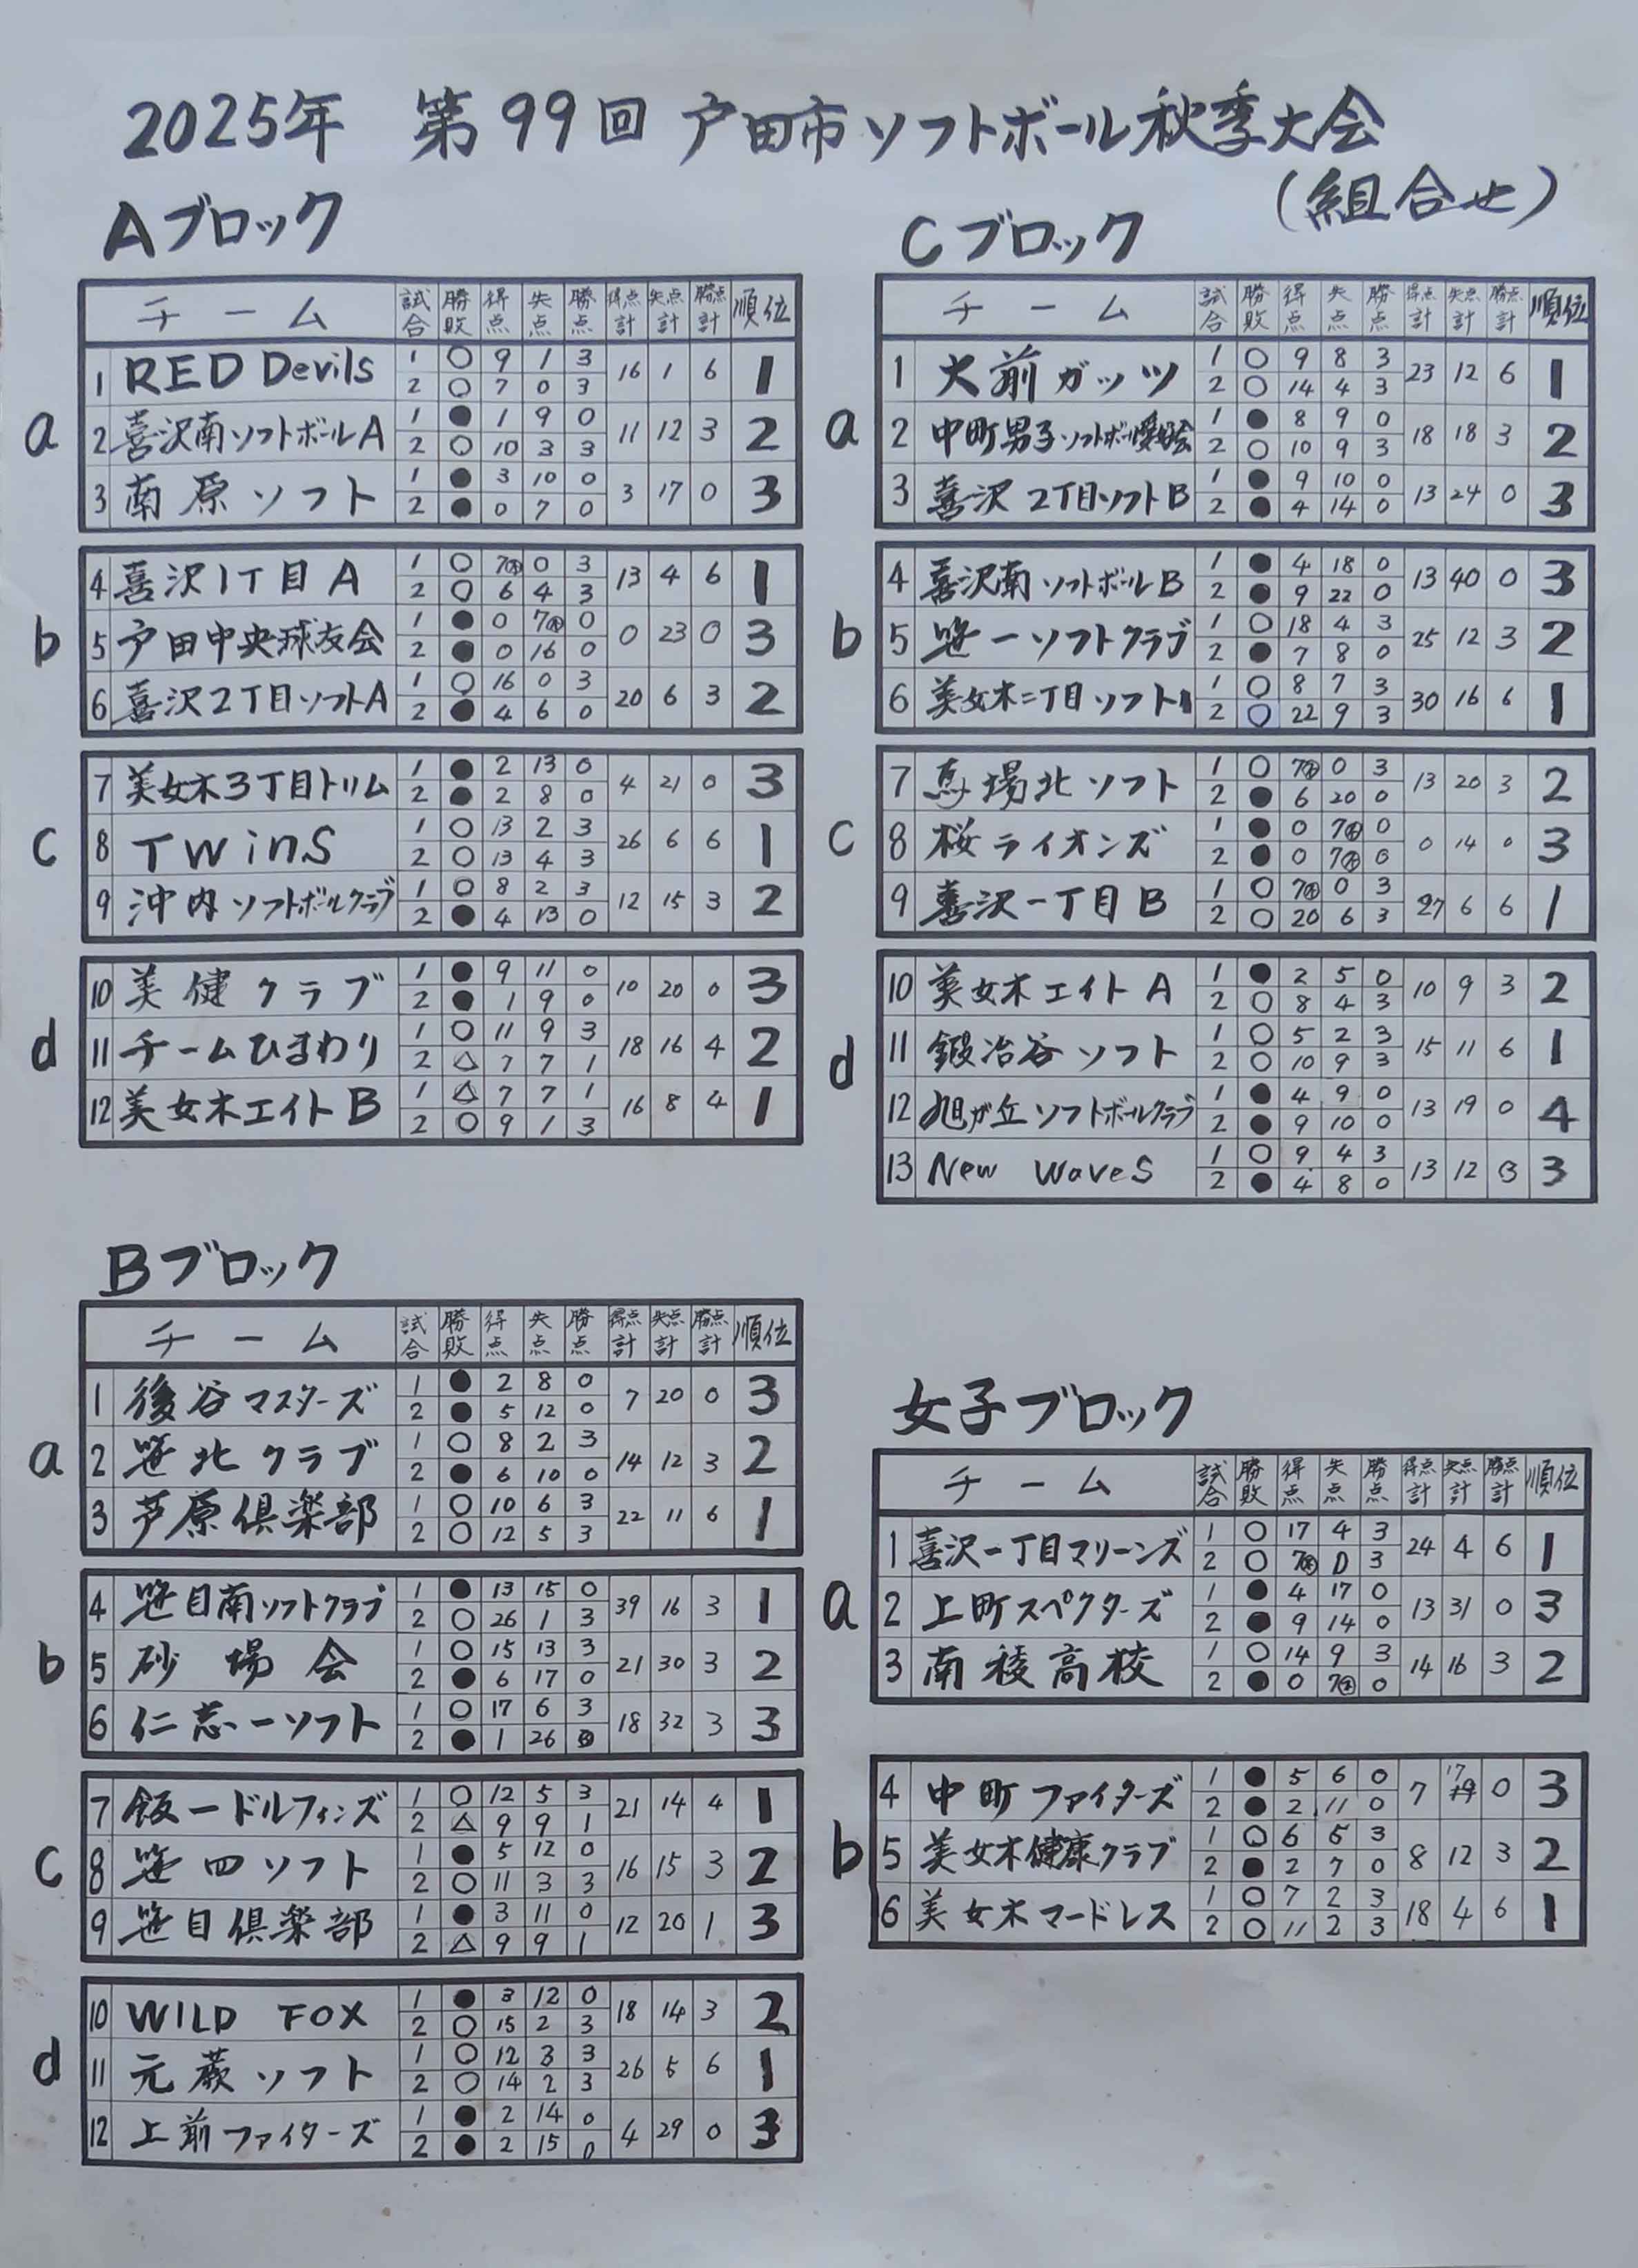 2025年 第99回 戸田市ソフトボール秋季大会
(組合せ)
Aブロック
チーム 試合 勝敗 得点 失点 勝点 得点計 失点計 勝点計 順位
a
1 RED Devils 1 ○ 9 1 3 16 1 6 1
2 ○ 7 0 3
2 喜沢南ソフトボールA 1 ● 1 9 0 11 12 3 2
2 ○ 10 3 3
3 南原ソフト 1 ● 3 10 0 3 17 0 3
2 ● 0 7 0
b
4 喜沢1丁目A 1 ○ 7 0 3 13 4 6 1
2 ○ 6 4 3
5 戸田中央球友会 1 ● 0 7 0 0 23 0 3
2 ● 0 16 0
6 喜沢2丁目ソフトA 1 ○ 16 0 3 20 6 3 2
2 ● 4 6 0
c
7 美女木3丁目トリム 1 ● 2 13 0 4 21 0 3
2 ● 2 8 0
8 Twins 1 ○ 13 2 3 26 6 6 1
2 ○ 13 4 3
9 沖内ソフトボールクラブ 1 ○ 8 2 3 12 15 3 2
2 ● 4 13 0
d
10 美健クラブ 1 ● 9 11 0 10 20 0 3
2 ● 1 9 0
11 チームひまわり 1 ○ 11 9 3 18 16 4 2
2 △ 7 7 1
12 美女木エイトB 1 △ 7 7 1 16 8 4 1
2 ○ 9 1 3
Bブロック
チーム 試合 勝敗 得点 失点 勝点 得点計 失点計 勝点計 順位
a
1 後谷マスターズ 1 ● 2 8 0 7 20 0 3
2 ● 5 12 0
2 笹北クラブ 1 ○ 8 2 3 14 12 3 2
2 ● 6 10 0
3 芦原倶楽部 1 ○ 10 6 3 22 11 6 1
2 ○ 12 5 3
b
4 笹目南ソフトクラブ 1 ● 13 15 0 39 16 3 1
2 ○ 26 1 3
5 砂場会 1 ○ 15 13 3 21 30 3 2
2 ● 6 17 0
6 仁志一ソフト 1 ○ 17 6 3 18 32 3 3
2 ● 1 26 0
c
7 飯一ドルフィンズ 1 ○ 12 5 3 21 14 4 1
2 △ 9 9 1
8 笹四ソフト 1 ● 5 12 0 16 15 3 2
2 ○ 11 3 3
9 笹目倶楽部 1 ● 3 11 0 12 20 1 3
2 △ 9 9 1
d
10 WILD FOX 1 ● 3 12 0 18 14 3 2
2 ○ 15 2 3
11 元蕨ソフト 1 ○ 12 3 3 26 5 6 1
2 ○ 14 2 3
12 上前ファイターズ 1 ● 2 14 0 4 29 0 3
2 ● 2 15 0
Cブロック
チーム 試合 勝敗 得点 失点 勝点 得点計 失点計 勝点計 順位
a
1 大前ガッツ 1 ○ 9 8 3 23 12 6 1
2 ○ 14 4 3
2 中町男子ソフトボール愛好会 1 ● 8 9 0 18 18 3 2
2 ○ 10 9 3
3 喜沢2丁目ソフトB 1 ● 9 10 0 13 24 0 3
2 ● 4 14 0
b
4 喜沢南ソフトボールB 1 ● 4 18 0 13 40 0 3
2 ● 9 22 0
5 笹一ソフトクラブ 1 ○ 18 4 3 25 12 3 2
2 ● 7 8 0
6 美女木二丁目ソフト 1 ○ 8 7 3 30 16 6 1
2 ○ 22 9 3
c
7 馬場北ソフト 1 ○ 7 0 3 13 20 3 2
2 ● 6 20 0
8 桜ライオンズ 1 ● 0 7 0 0 14 0 3
2 ● 0 7 0
9 喜沢一丁目B 1 ○ 7 0 3 27 6 6 1
2 ○ 20 6 3
d
10 美女木エイトA 1 ● 2 5 0 10 9 3 2
2 ○ 8 4 3
11 鍛冶谷ソフト 1 ○ 5 2 3 15 11 6 1
2 ○ 10 9 3
12 旭が丘ソフトボールクラブ 1 ● 4 9 0 13 19 0 4
2 ● 9 10 0
13 New Waves 1 ○ 9 4 3 13 12 3 3
2 ● 4 8 0
女子ブロック
チーム 試合 勝敗 得点 失点 勝点 得点計 失点計 勝点計 順位
a
1 喜沢一丁目マリーンズ 1 ○ 17 4 3 24 4 6 1
2 ○ 7 0 3
2 上町スペクターズ 1 ● 4 17 0 13 31 0 3
2 ● 9 14 0
3 南稜高校 1 ○ 14 9 3 14 16 3 2
2 ● 0 7 0
b
4 中町ファイターズ 1 ● 5 6 0 7 17 0 3
2 ● 2 11 0
5 美女木健康クラブ 1 ○ 6 5 3 8 12 3 2
2 ● 2 7 0
6 美女木マードレス 1 ○ 7 2 3 18 4 6 1
2 ○ 11 2 3